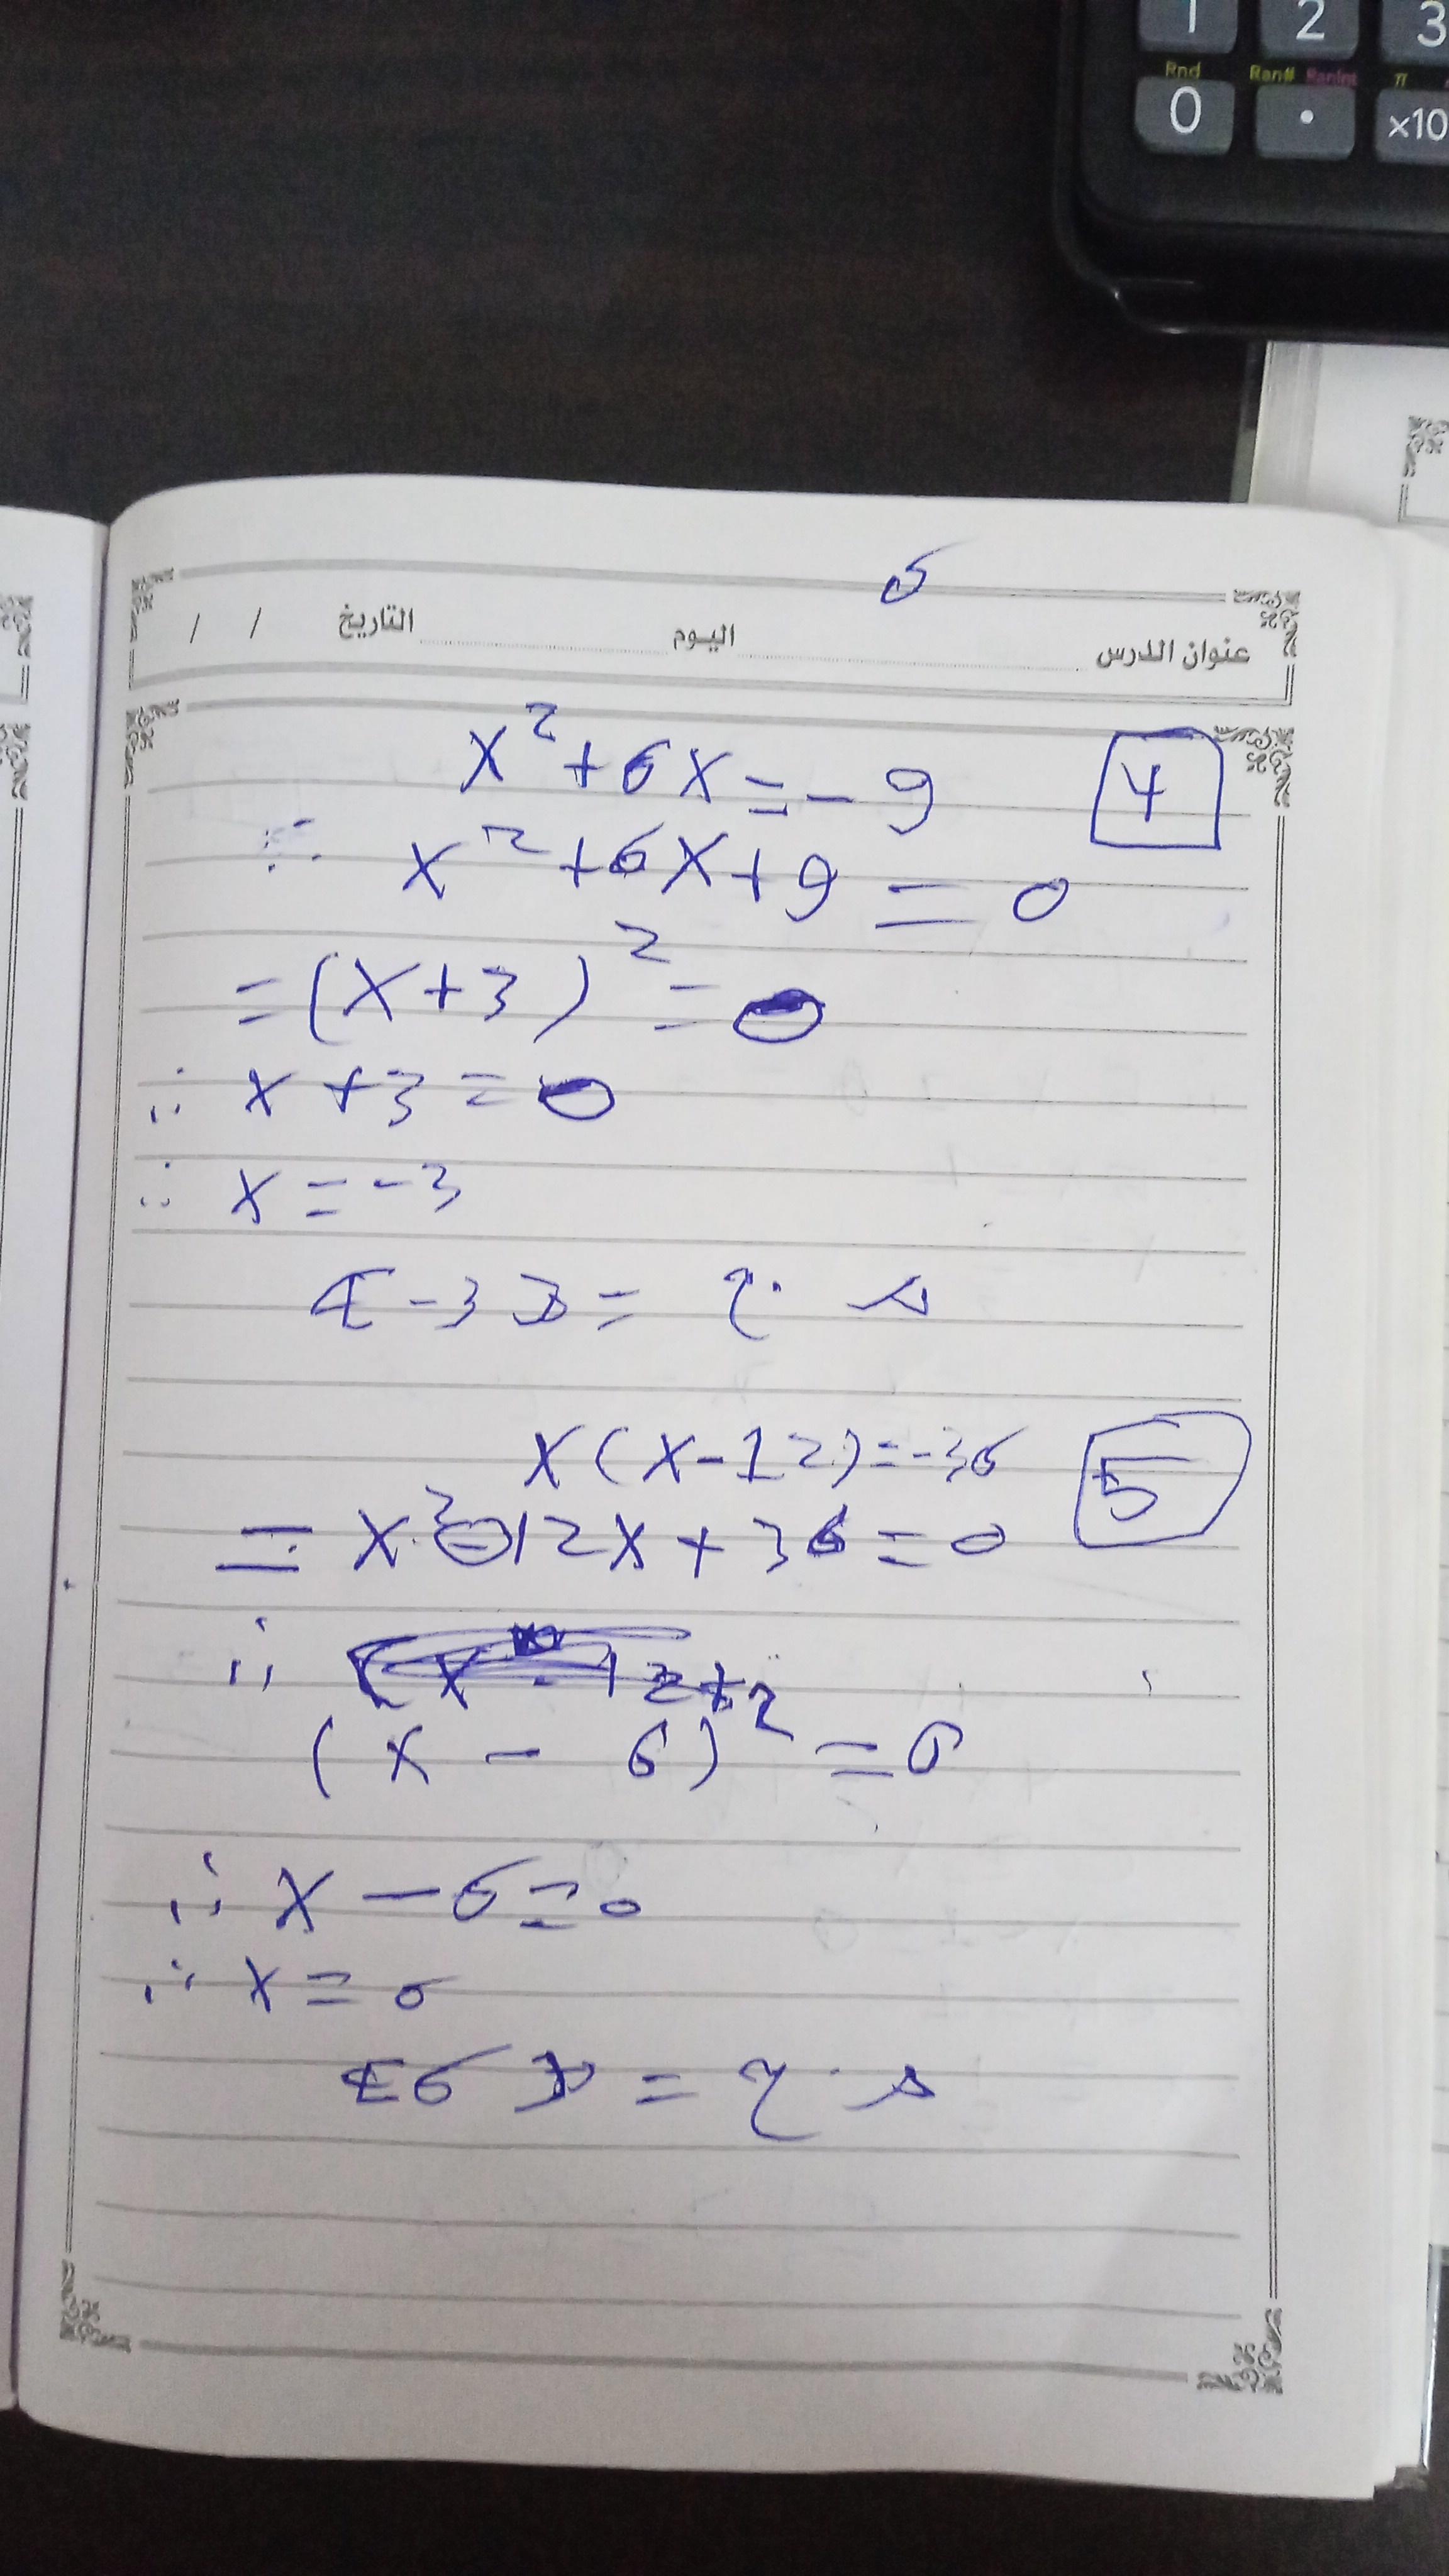 1 2 3
Rnd Ran# RanInt π
0 . ×10
6
عنوان الدرس اليوم التاريخ / /
x² + 6x = - 9 4
∴ x² + 6x + 9 = 0
= (x + 3)² = 0
∴ x + 3 = 0
∴ x = - 3
م . ح = {-3}
x (x - 12) = -36 5
= x² - 12x + 36 = 0
∴
(x - 6)² = 0
∴ x - 6 = 0
∴ x = 6
م . ح = {6}